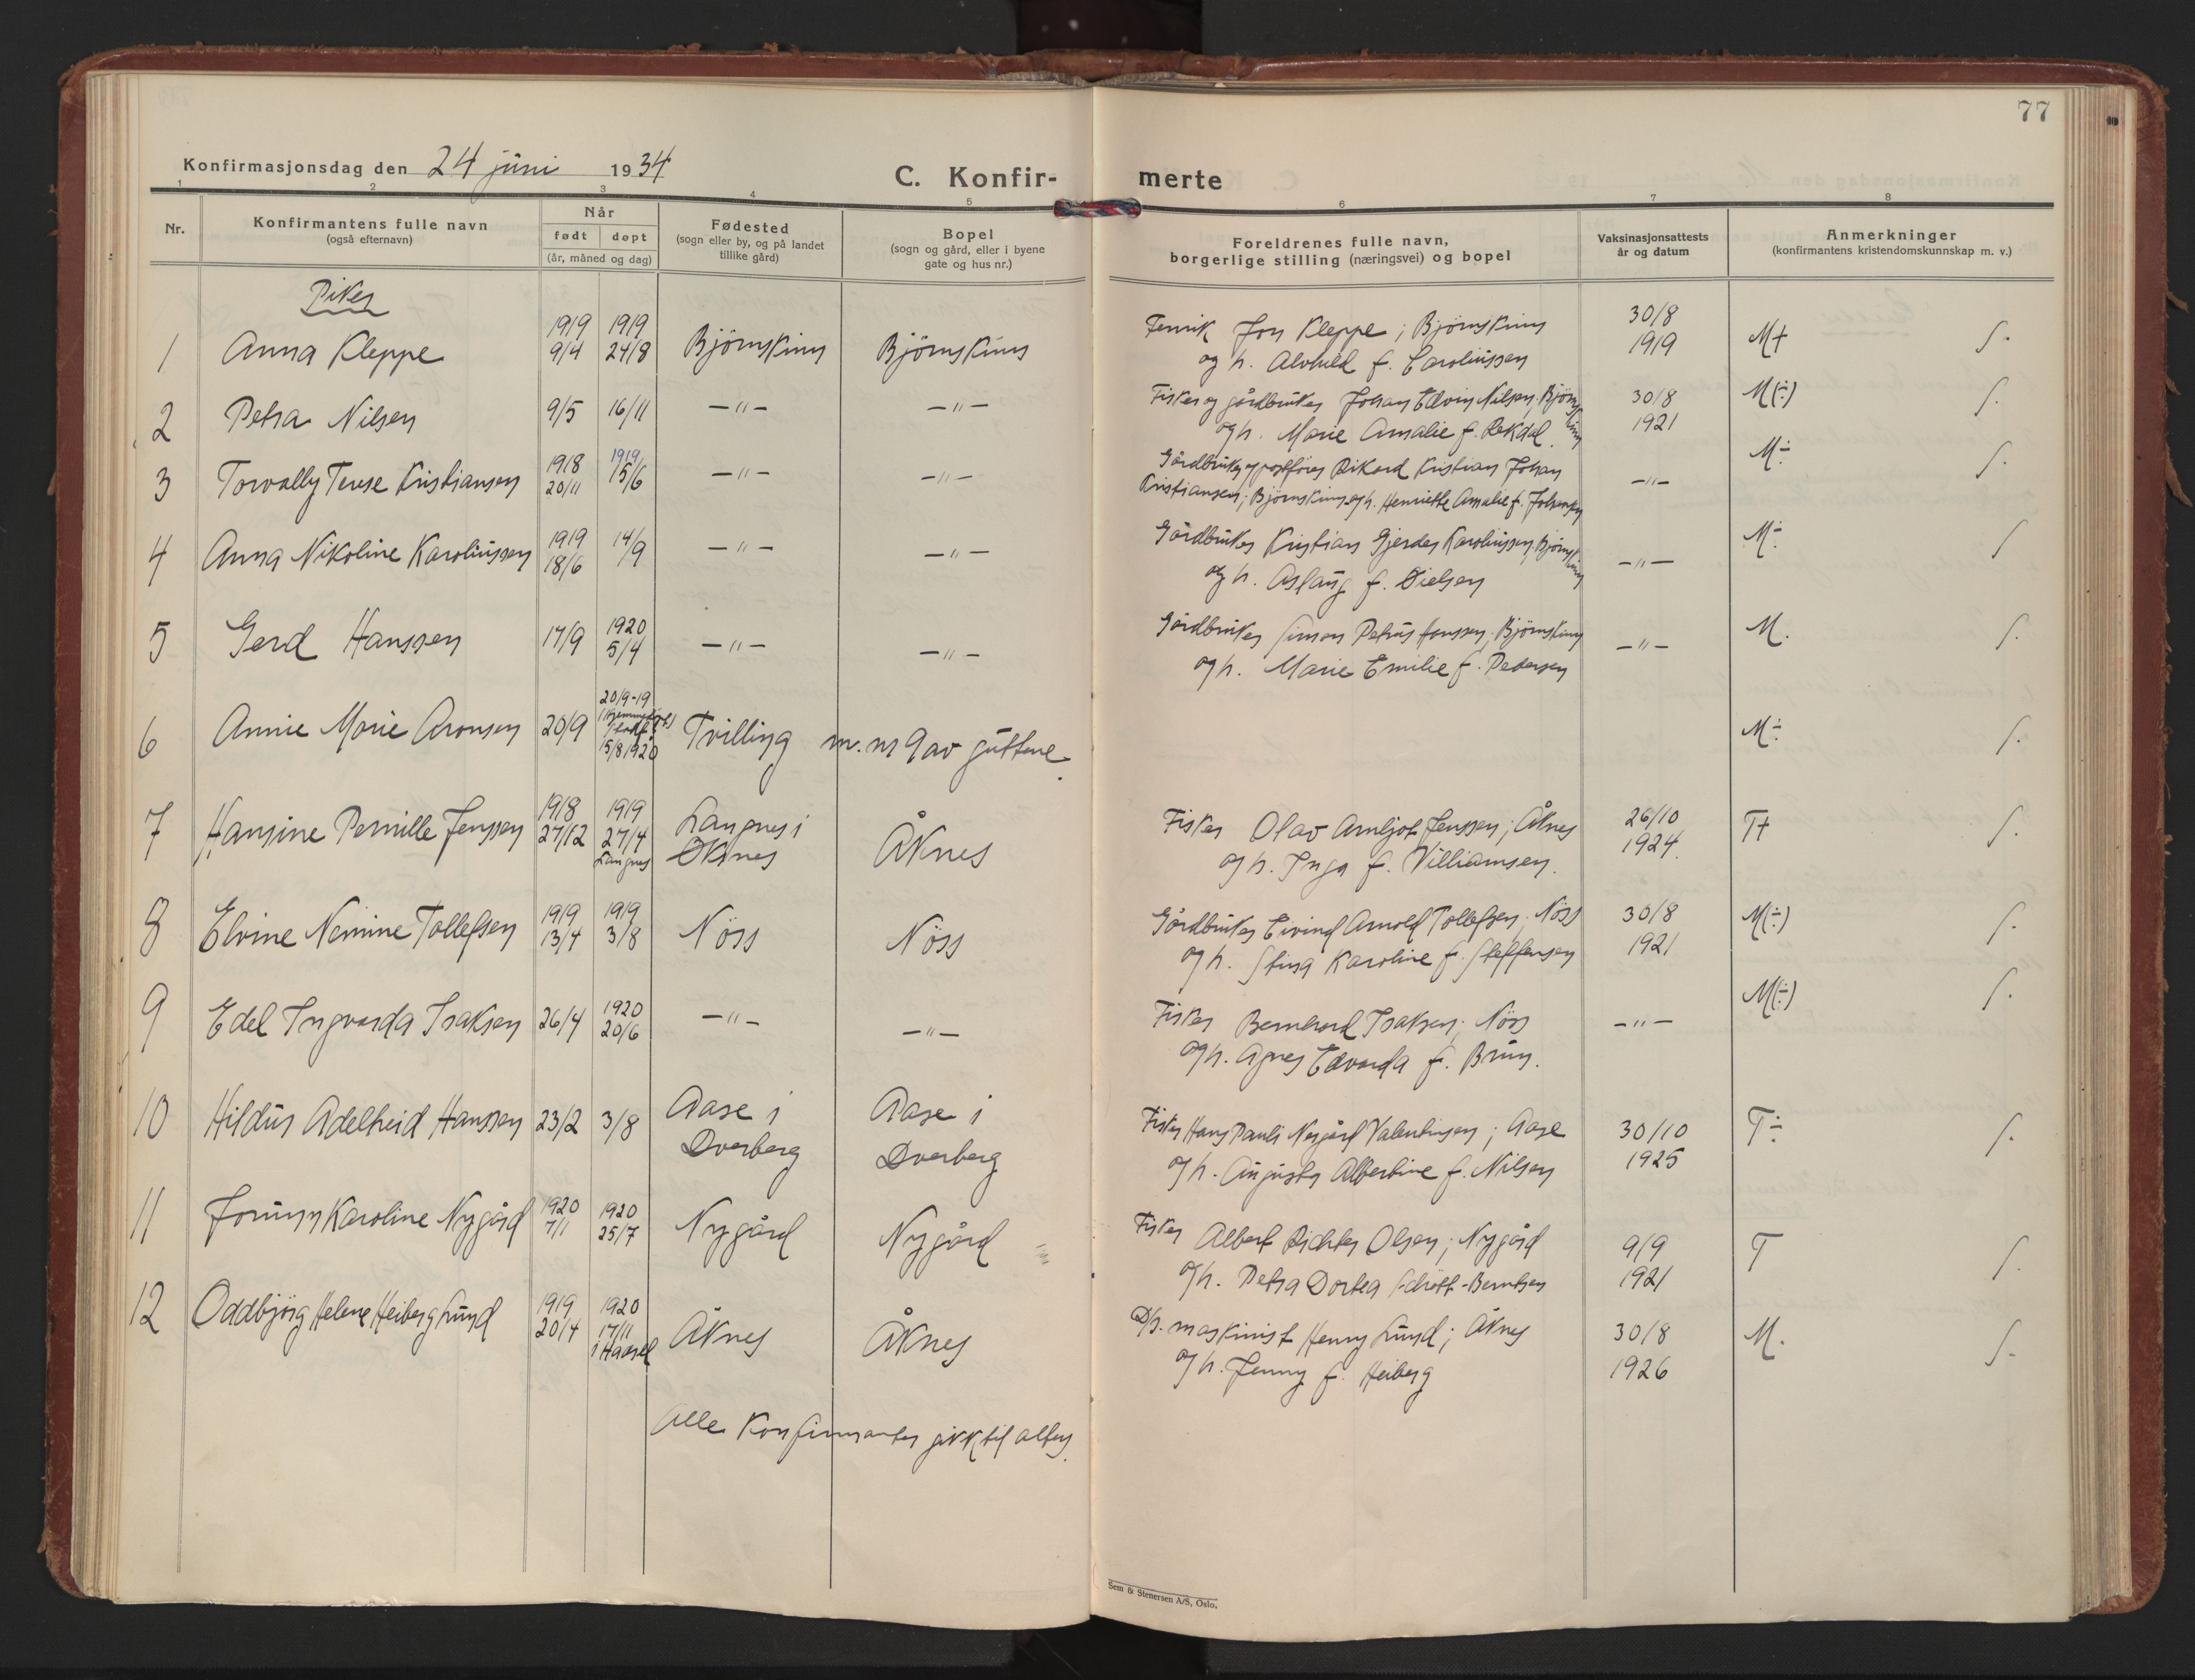 77
Konfirmasjonsdag den 24 juni 1934
C. Konfir- merte
1 2 3 4 5 6 7 8
Nr.
Konfirmantens fulle navn
(også efternavn)
Når
født døpt
(år, måned og dag)
Fødested
(sogn eller by, og på landet
tillike gård)
Bopel
(sogn og gård, eller i byene
gate og hus nr.)
Foreldrenes fulle navn,
borgerlige stilling (næringsvei) og bopel
Vaksinasjonsattests
år og datum
Anmerkninger
(konfirmantens kristendomskunnskap m. v.)
Piker
1 Anna Kleppe 1919 9/4 1919 24/8 Björnskinn Björnskinn
Fenrik Jon Kleppe; Björnskinn
og h. Alvhild f. Caroliussen
30/8
1919
M+ S.
2 Petra Nilsen 9/5 16/11 -"- -"-
Fisker og gårdbruker Johan Edvin Nilsen, Björnskinn
og h. Marie Amalie f. Rekdal.
30/8
1921
M(÷) S.
3 Torvally Terese Kristiansen 1918 20/11 1919 15/6 -"- -"-
Gårdbruker og postförer Rikard Kristian Johan
Kristiansen; Björnskinn og h. Henriette Amalie f. Johansen
-"-
M÷ S.
4 Anna Nikoline Karoliussen 1919 18/6 14/9 -"- -"-
Gårdbruker Kristian Gjerder Karoliussen, Björnskinn
og h. Aslaug f. Nielsen
-"-
M÷ S
5 Gerd Hanssen 17/9 1920 5/4 -"- -"-
Gårdbruker Simon Petrus Hanssen, Björnskinn
og h. Marie Emilie f. Pedersen
-"-
M. S.
6 Annie Marie Aronsen 20/9 20/9-19 15/8 1920 Tvilling m. nr 9 av guttene.
M÷ S.
7 Hansine Pernille Jenssen 1918 27/12 1919 27/4 Langnes Langnes i Öksnes Åknes
Fisker Olav Arnljot Jenssen; Åknes
og h. Inga f. Villiamsen.
26/10
1924.
T+ S.
8 Elvine Nemine Tollefsen 1919 13/4 1919 3/8 Nöss Nöss
Gårdbruker Eivind Arnold Tollefsen; Nöss
og h. Stina Karoline f. Steffensen
30/8
1921
M(÷) S.
9 Edel Ingvarda Isaksen 26/4 1920 20/6 -"- -"-
Fisker Bernhard Isaksen; Nöss
og h. Agnes Edvarda f. Brun.
-"-
M(÷) S.
10 Hildur Adelheid Hanssen 23/2 3/8 Aase i Dverberg Aase i Dverberg
Fisker Hans Pauli Nygård Valentinsen; Aase
og h. Augusta Albertine f. Nilsen
30/10
1925
T÷ S.
11 Jorunn Karoline Nygård 1920 7/1 1920 25/7 Nygård Nygård
Fisker Albert Richter Olsen; Nygård
og h. Petra Dortea Schrött-Berntsen
9/9
1921
T S.
12 Oddbjörg Helene Heiberg Lund 1919 20/4 1920 17/11 i Hadsel Åknes Åknes
D/s. maskinist Henry Lund; Åknes
og h. Jenny f. Heiberg
30/8
1926
M. S.
Alle konfirmanter gikk til alters.
Sem & Stenersen A/S, Oslo.